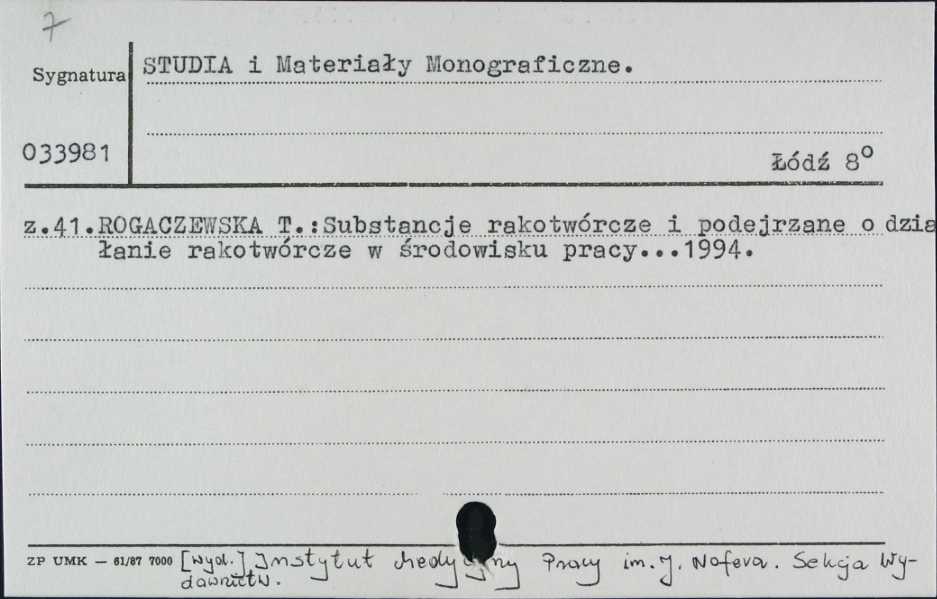 7
Sygnatura
STUDIA i Materiały Monograficzne.
033981
Łódź 8°
z.41.ROGACZEWSKA T.:Substancje rakotwórcze i podejrzane o dzia
łanie rakotwórcze w środowisku pracy...1994.
ZP UMK — 61/87 7000 [Wyd.] Instytut Medycyny Pracy im. J. Nofera. Sekcja Wy-
dawnictw.